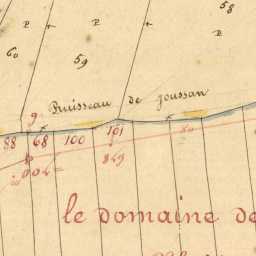 58
P
P
P
60
59
Ruisseau de joussan
9
88 68 100 101
849
le Domaine de